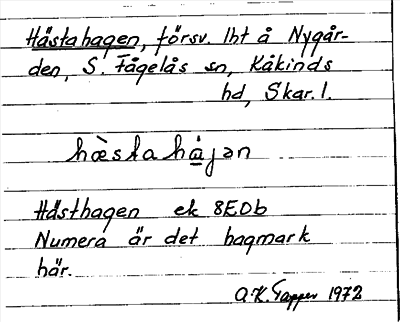 Hästahagen, försv. lht å Nygår-
den, S. Fågelås sn, Kåkinds
hd, Skar. l.
hæ̀sta hå̱jən
Hästhagen ek 8E0b
Numera är det hagmark
här.
A.K. Tapper 1972